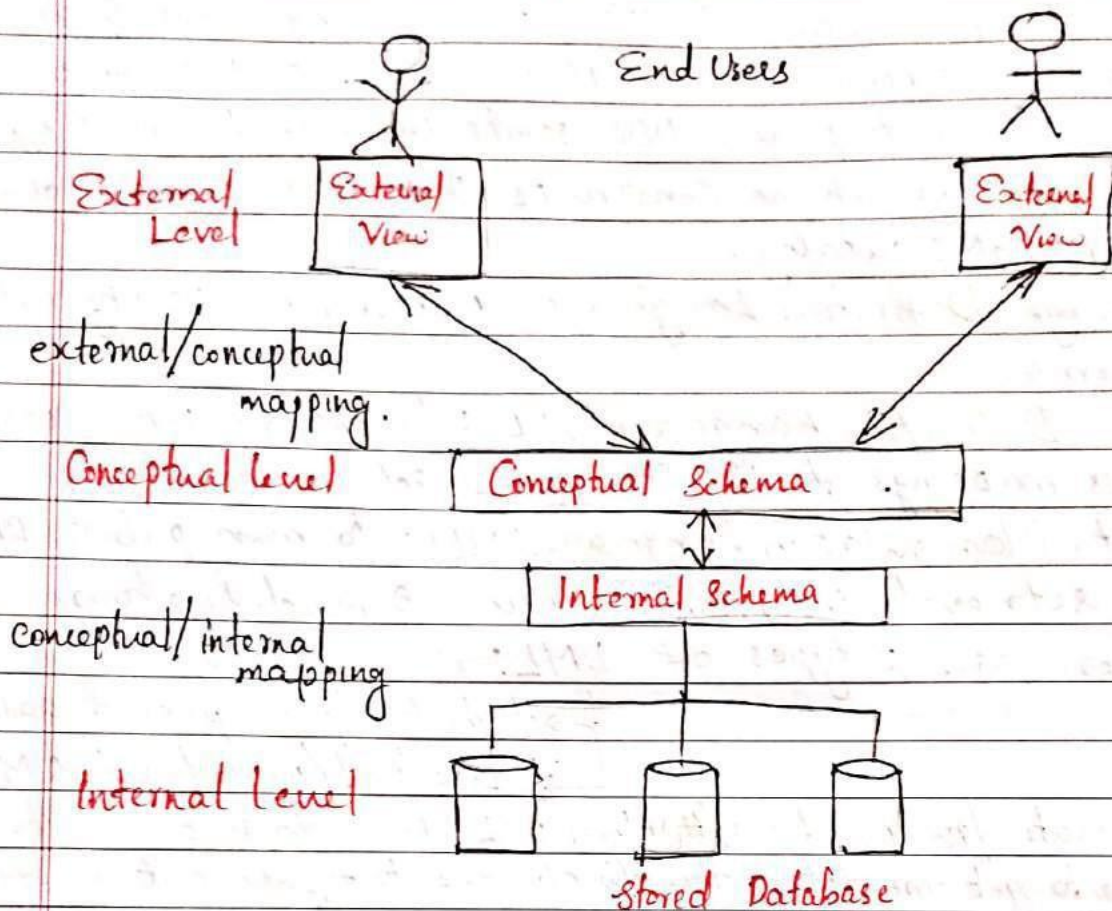 End Users
External
Level
External
View
External
View
external/conceptual
mapping.
Conceptual level
Conceptual Schema .
Internal Schema
conceptual/internal
mapping
Internal level
Stored Database